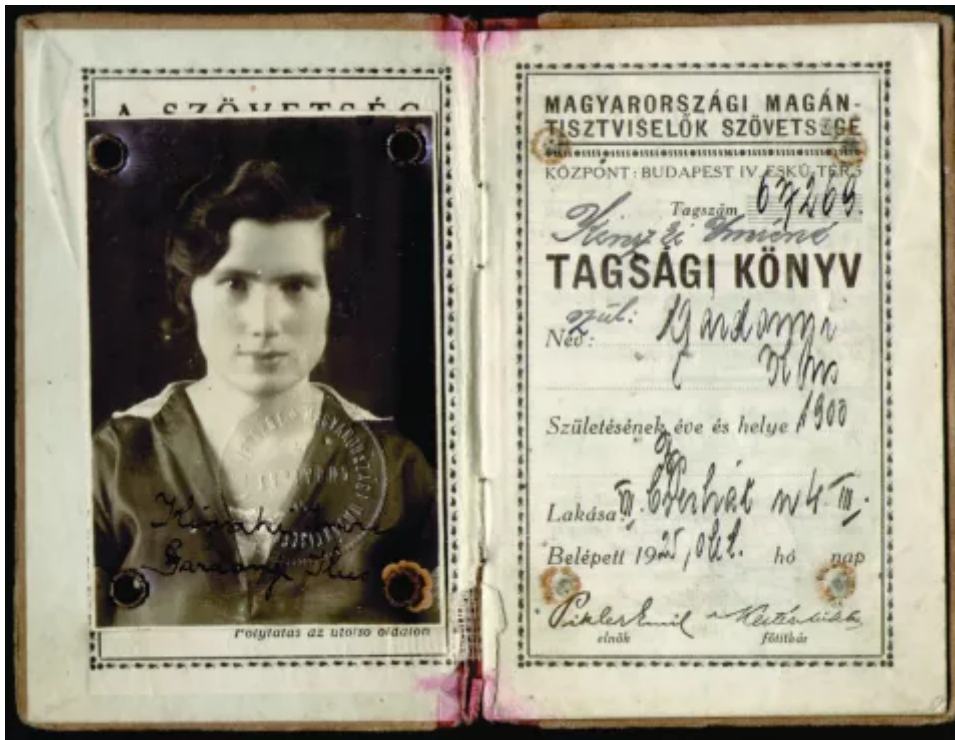 A SZÖVETSÉG
Gardonyi Ilus
Folytatás az utolsó oldalon
MAGYARORSZÁGI MAGÁN-
TISZTVISELŐK SZÖVETSÉGE
KÖZPONT: BUDAPEST IV. ESKÜ TÉR 5
Tagszám 67269.
Imréné
TAGSÁGI KÖNYV
szül:
Név: Gardonyi
Ilus
Születésének éve és helye 1900
Lakása: VII. 4. III.
Belépett 1925 okt. hó nap
Pikler Emil
elnök főtitkár